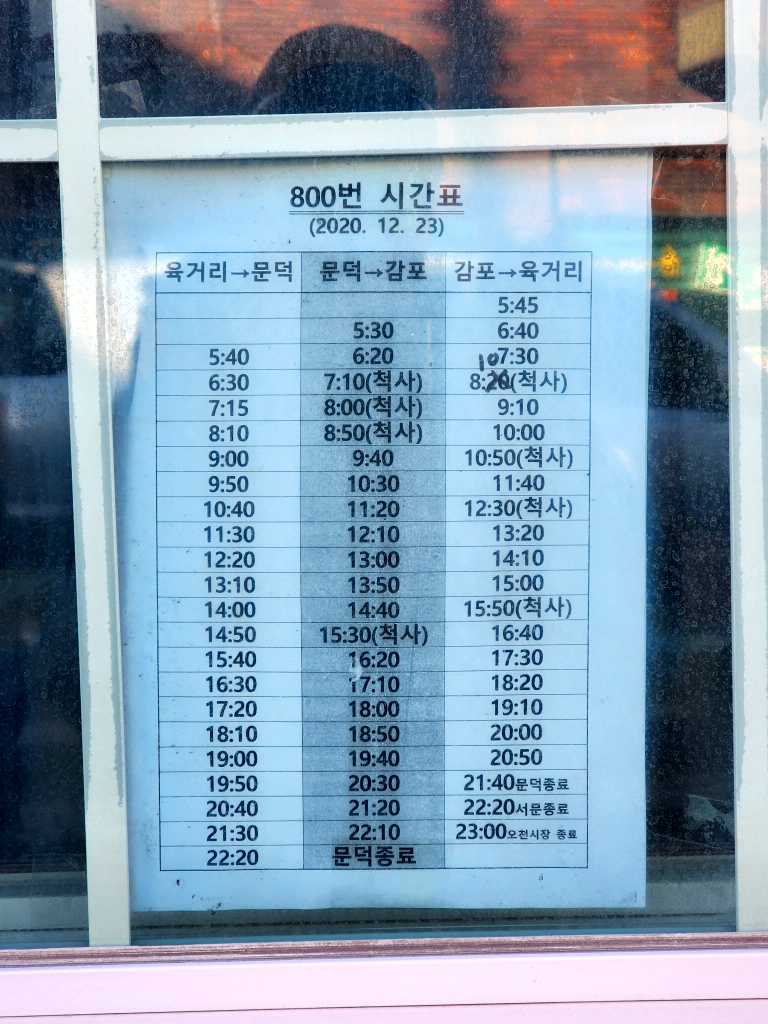 800번 시간표
(2020. 12. 23)
육거리→문덕 문덕→감포 감포→육거리
5:45
5:30 6:40
5:40 6:20 7:30
10
6:30 7:10(척사) 8:20(척사)
7:15 8:00(척사) 9:10
8:10 8:50(척사) 10:00
9:00 9:40 10:50(척사)
9:50 10:30 11:40
10:40 11:20 12:30(척사)
11:30 12:10 13:20
12:20 13:00 14:10
13:10 13:50 15:00
14:00 14:40 15:50(척사)
14:50 15:30(척사) 16:40
15:40 16:20 17:30
16:30 17:10 18:20
17:20 18:00 19:10
18:10 18:50 20:00
19:00 19:40 20:50
19:50 20:30 21:40문덕종료
20:40 21:20 22:20서문종료
21:30 22:10 23:00오천시장 종료
22:20 문덕종료